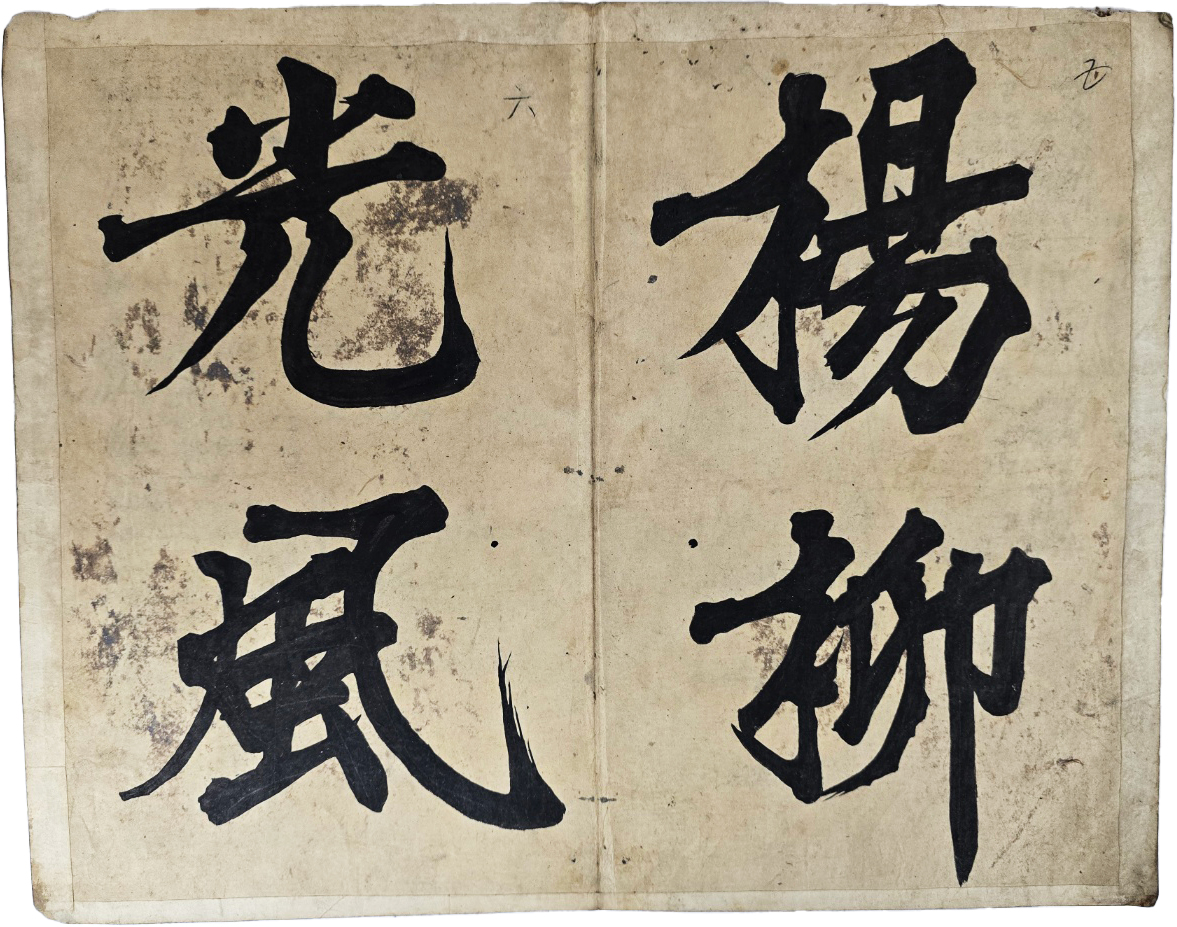 五
楊柳
六
光風